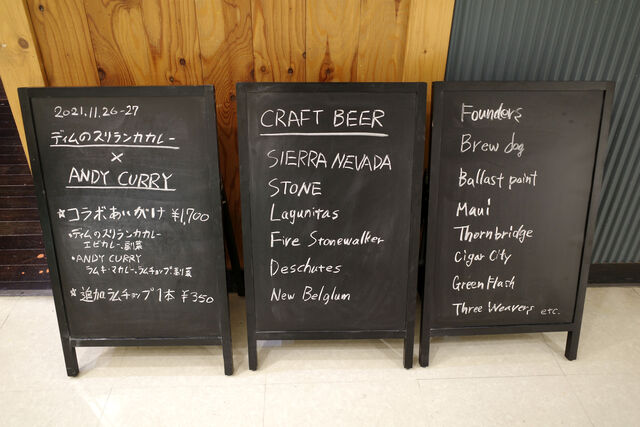 2021.11.26-27
ディムのスリランカカレー
×
ANDY CURRY
☆コラボあいがけ ¥1,700
・ディムのスリランカカレー
エビカレー、副菜
・ANDY CURRY
ラムキーマカレー、ラムチョップ、副菜
☆追加ラムチョップ1本 ¥350
CRAFT BEER
SIERRA NEVADA
STONE
Lagunitas
Fire Stonewalker
Deschutes
New Belgium
Founders
Brew dog
Ballast point
Maui
Thornbridge
Cigar City
Green Flash
Three Weavers etc.